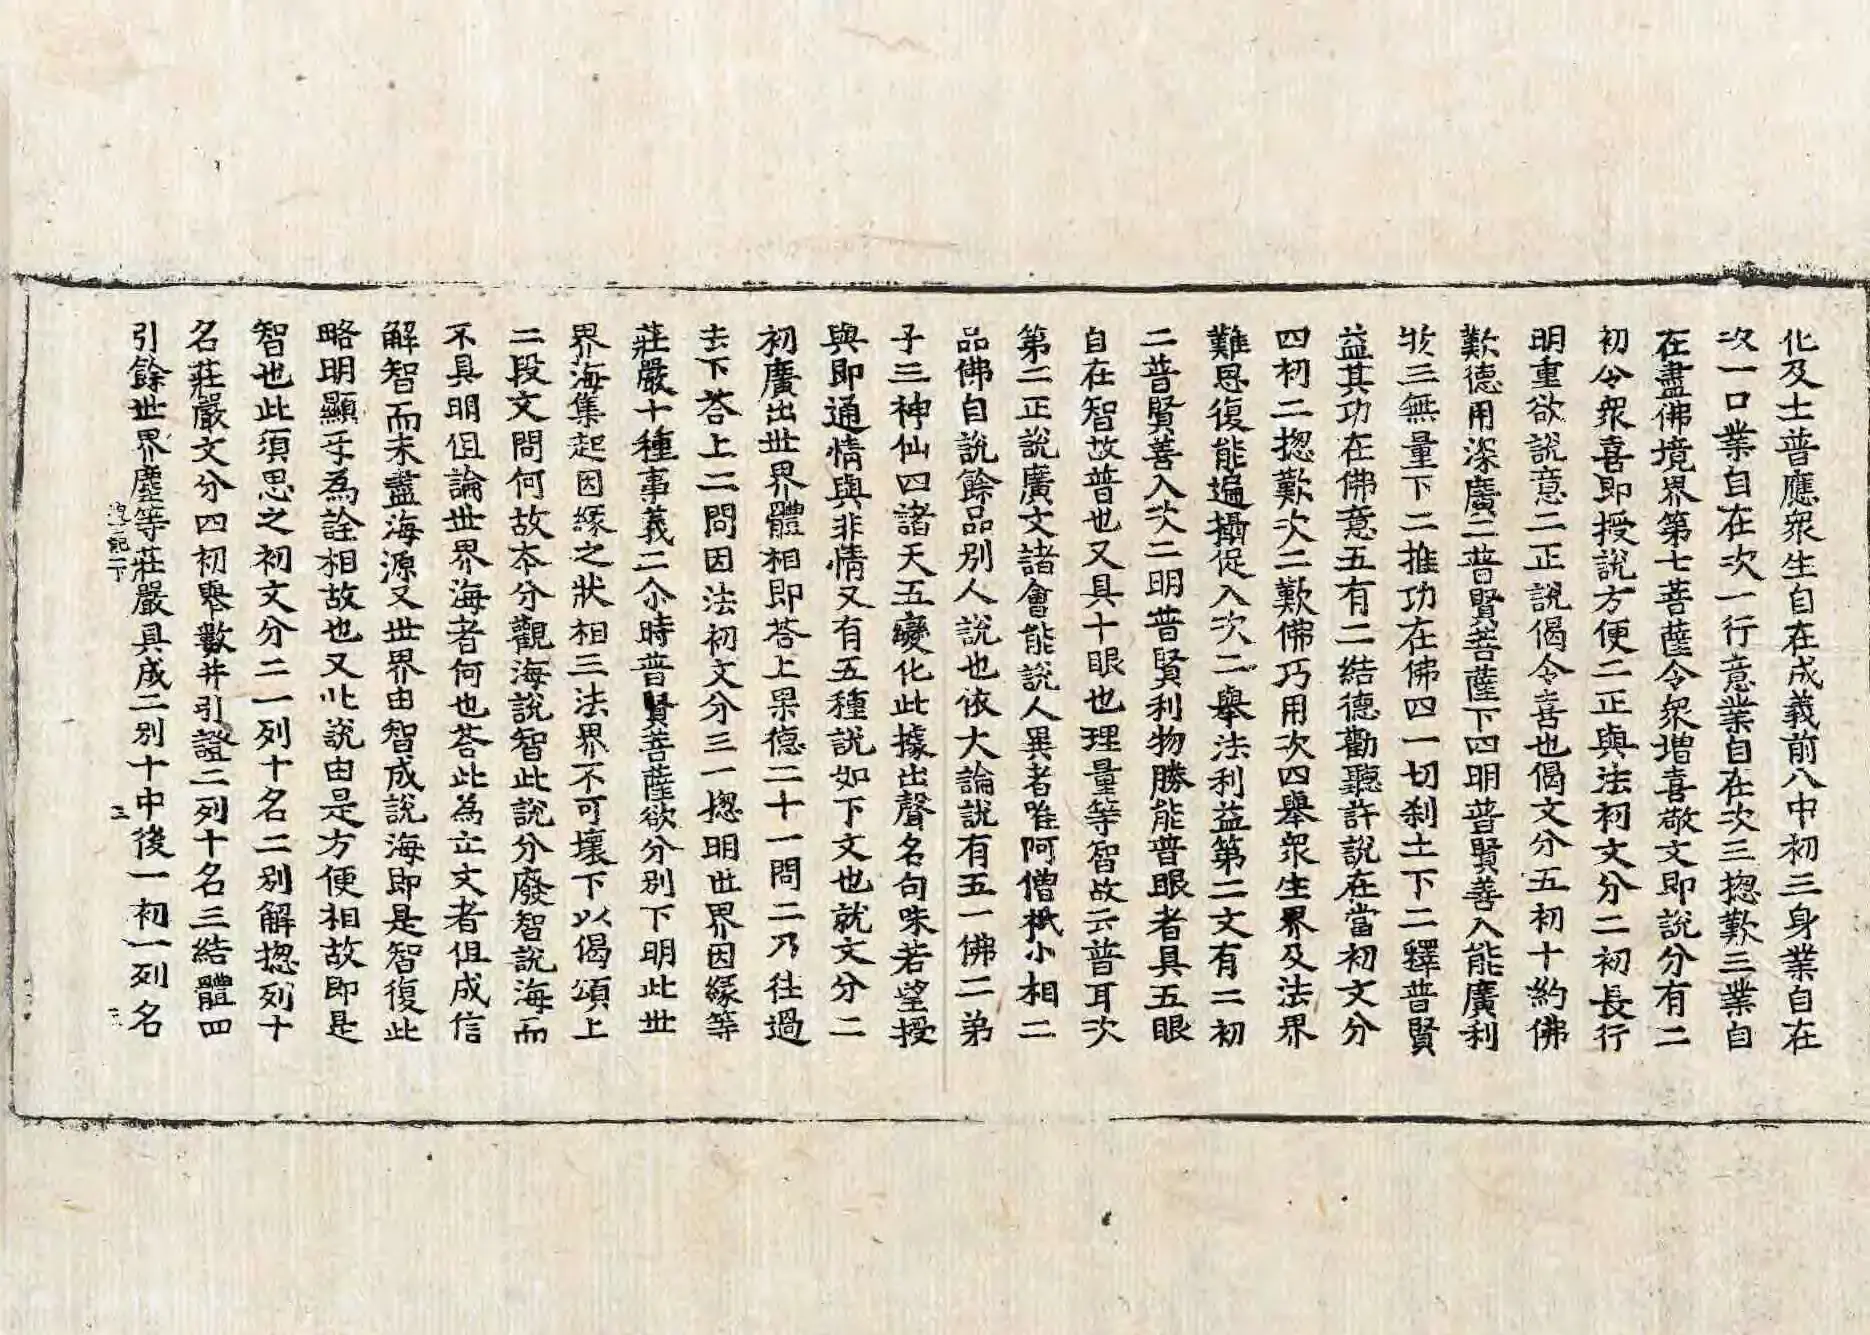 化及士普應衆生自在成義前八中初三身業自在
次一口業自在次一行意業自在次三揔歎三業自
在盡佛境界第七菩薩令衆增喜敬文即說分有二
初令衆喜即授說方便二正與法初文分二初長行
明重欲說意二正說偈令喜也偈文分五初十約佛
歎德用深廣二普賢菩薩下四明普賢善入能廣利
物三無量下二推功在佛四一切刹土下二釋普賢
益其功在佛意五有二結德勸聽許說在當初文分
四初二揔歎次二歎佛巧用次四舉衆生界及法界
難思復能遍攝促入次二舉法利益第二文有二初
二普賢善入次二明普賢利物勝能普眼者具五眼
自在智故普也又具十眼也理量等智故云普耳次
第二正說廣文諸會能說人異者唯阿僧祇小相二
品佛自說餘品別人說也依大論說有五一佛二弟
子三神仙四諸天五變化此據出聲名句味若望授
與即通情與非情又有五種說如下文也就文分二
初廣出世界體相即荅上果德二十一問二乃往過
去下荅上二問因法初文分三一揔明世界因緣等
莊嚴十種事義二尒時普賢菩薩欲分別下明此世
界海集起因緣之狀相三法界不可壞下以偈頌上
二段文問何故本分觀海說智此說分廢智說海而
不具明但論世界海者何也荅此為立文者但成信
解智而未盡海源又世界由智成說海即是智復此
略明顯乎為詮相故也又此說由是方便相故即是
智也此須思之初文分二一列十名二別解揔列十
名莊嚴文分四初舉數并引證二列十名三結體四
引餘世界塵等莊嚴具成二別十中後一初一列名
記一下 三